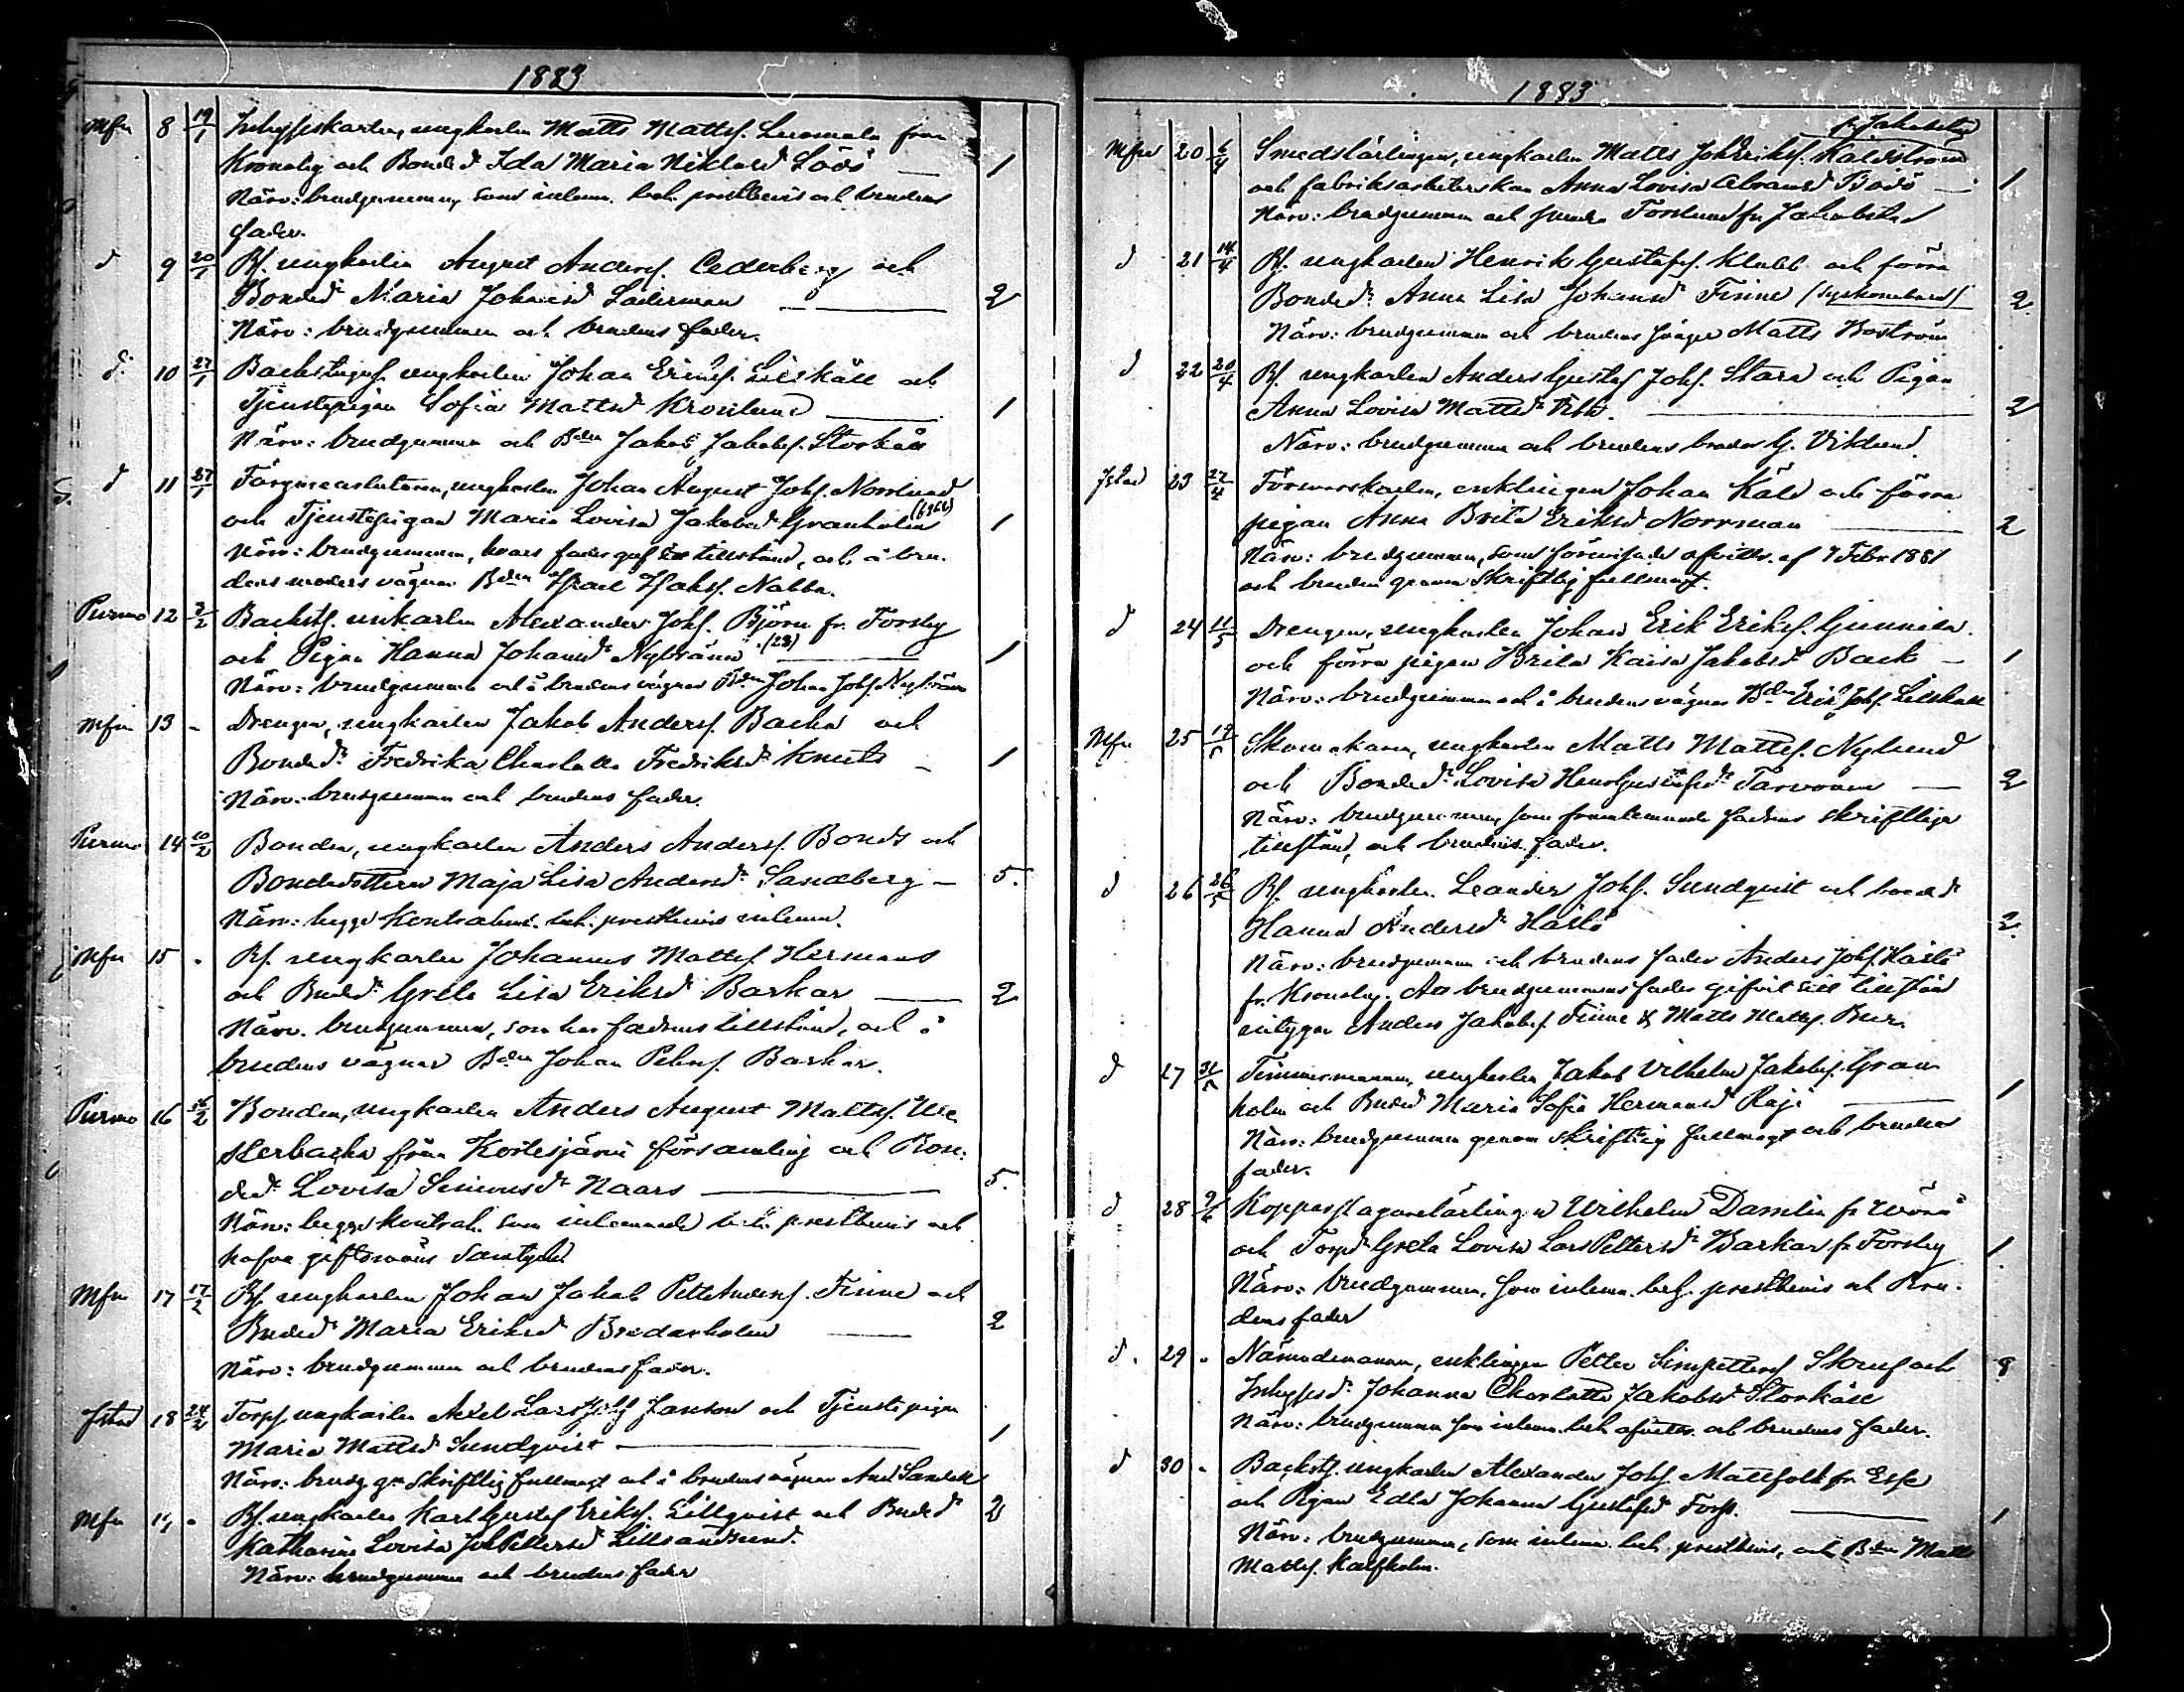 1883
Mfn 8 19/1 Inhyseskarlen, ungkarlen Matts Mattsf. Luomala från
Kronoby och Bonded Ida Maria Niklasd Löös — 1
Närv: brudgummen, som inlemn. beh. prestbevis och brudens
fader.
d 9 20/1 Bf. ungkarlen August Andersf. Cederberg och
Bonded Maria Johansd Läderman — 2
Närv: brudgummen och brudens fader.
d: 10 27/1 Backstugusf. ungkarlen Johan Eriksf. Lillkåll och
Tjenstepigan Sofia Mattsd Kronlund — 1
Närv: brudgummen och Bden Jakob Jakobsf. Storkåll
d 11 27/1 ungkarlen Johan August Johsf. Norrlund
och Tjenstepigan Maria Lovisa Jakobsd Granholm 1
Närv: brudgummen, hvars fader gaf tillstånd, och å bru-
dens moders vägnar Bden Isaksf. Nabba.
Purmo 12 2/2 Backstf. unkarlen Alexander Johsf. Björn fr. Forsby
och Pigan Hanna Johansd Nybränn (23) — 1
Närv: brudgummen och å brudens vägnar Bden Johan Johsf. Nybränn
Mfn 13 - Drengen, ungkarlen Jakob Andersf. Backa och
Bonded Fredrika Charlotta Fredriksd Knuts — 1
Närv: brudgummen och brudens fader.
Purmo 14 10/2 Bonden, ungkarlen Anders Andersf. Bonds och
Bondedottern Maja Lisa Andersd Sandberg — 5.
Närv: begge Kontrahent. beh. prestbevis inlemn.
Mfn 15 - Bf. ungkarlen Johannes Mattsf. Hermans
och Bonded Greta Lisa Eriksd Barkar — 2
Närv. brudgummen, som har fadrens tillstånd, och å
brudens vägnar Bden Johan Petersf. Barkar.
Purmo 16 16/2 Bonden, ungkarlen Anders August Mattsf.
sterbacka från Kortesjärvi församling och Bon-
ded Lovisa Simonsd Naars — 5.
Närv: begge kontrah. som inlemnade beh. prestbevis och
hafva giftomäns samtycke
Mfn 17 17/2 Bf. ungkarlen Johan Jakob PettAndersf. Finne och
Bonded Maria Eriksd Bredarholm — 2
Närv: brudgummen och brudens fader.
Jstad 18 24/2 Torpf. ungkarlen Axel Lars Johsf Janson och Tjenstepigan
Maria Mattsd Sundqvist — 1
Närv: brudg. gn skriftlig fullmagt och å brudens vägnar And. Sandell
Mfn 19 - Bf. ungkarlen Karl Gustaf Eriksf. Lillqvist och Bonded 2
Katharina Lovisa JohPettersd Lillsandsund.
Närv: brudgummen och brudens fader
1883
fr. Jakobstad
Mfn 20 6/4 Smedslärlingen, ungkarlen Matts JohEriksf. Kaldström
och fabriksarbeterskan Anna Lovisa Abramsd Bodö — 1
Närv: brudgummen och Forslund fr. Jakobstad
d 21 14/4 Bf. ungkarlen Henrik Gustafsf. Klubb och förra
Bonded Anna Lisa Johansd Finne (Syskonebarn) 2.
Närv: brudgummen och brudens svåger Matts Boström
d 22 20/4 Bf. ungkarlen Anders Gustaf Johsf. Stara och Pigan
Anna Lovisa Mattsd — 2
Närv: brudgummen och brudens broder G. Viklund.
Jstad 23 27/4 enklingen Johan Käld och förra
pigan Anna Brita Eriksd Norrman — 2
Närv: brudgummen, som förevisade afvittr. af 7 Febr 1881
och bruden genom skriftlig fullmagt.
d 24 11/5 Drengen, ungkarlen Johan Erik Eriksf. Gunnila.
och förra pigan Brita Kaisa Jakobsd Back — 1
Närv: brudgummen och å brudens vägnar Bden Erik Johsf. Lillkåll
Mfn 25 19/5 Skomakaren, ungkarlen Matts Mattsf. Nylund
och Bonded Lovisa HenrGustafsd Tarvonen — 2
Närv: brudgummen, som framlemnade fadrens skriftliga
tillstånd, och brudens fader.
d 26 26/5 Bf. ungkarlen Leander Johsf. Sundqvist och bonded
Hanna Andersd Hästö 2.
Närv: brudgummen och brudens fader Anders Johsf. Hästö
fr. Kronoby. Att brudgummens fader gifvit sitt tillstånd
intygar Anders Jakobsf. Finne & Matts Mattsf. Bur.
d 27 31/5 Timmermannen, ungkarlen Jakob Vilhelm Jakobsf. Gran-
holm och Bonded Maria Sofia Hermansd Kåjs — 1
Närv: brudgummen genom skriftlig fullmagt och brudens
fader.
d 28 9/6 Kopparslagarelärlingen Wilhelm Damlin fr Wörå
och Torpd Greta Lovisa Lars Pettersd Barkar fr Forsby 1.
Närv: brudgummen, som inlemn. beh. prestbevis och bru-
dens fader
d. 29 - Nämndemannen, enklingen Petter SimPettersf Skrufs och 8
Inhysesd: Johanna Charlotta Jakobsd Storkåll
Närv: brudgummen som inlemn. beh. afvittr. och brudens fader.
d 30 - Backstf. ungkarlen Alexander Johsf. Mattfolk fr Esse
och Pigan Edla Johanna Gustafsd Forss. — 1
Närv: brudgummen, som inlemn. beh. prestbevis, och Bden Matts
Mattsf. Kalfholm.